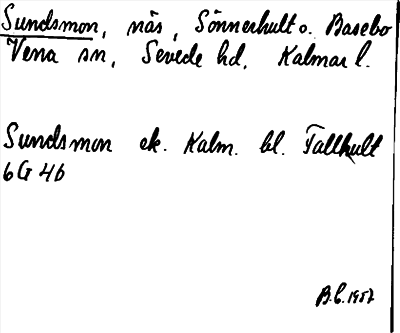 Sundsmon, näs, Sönnerhult o. Basebo
Vena sn, Sevede hd, Kalmar l.
Sundsmon ek. Kalm. bl. Tallhult
6G 4b
B.L. 1957